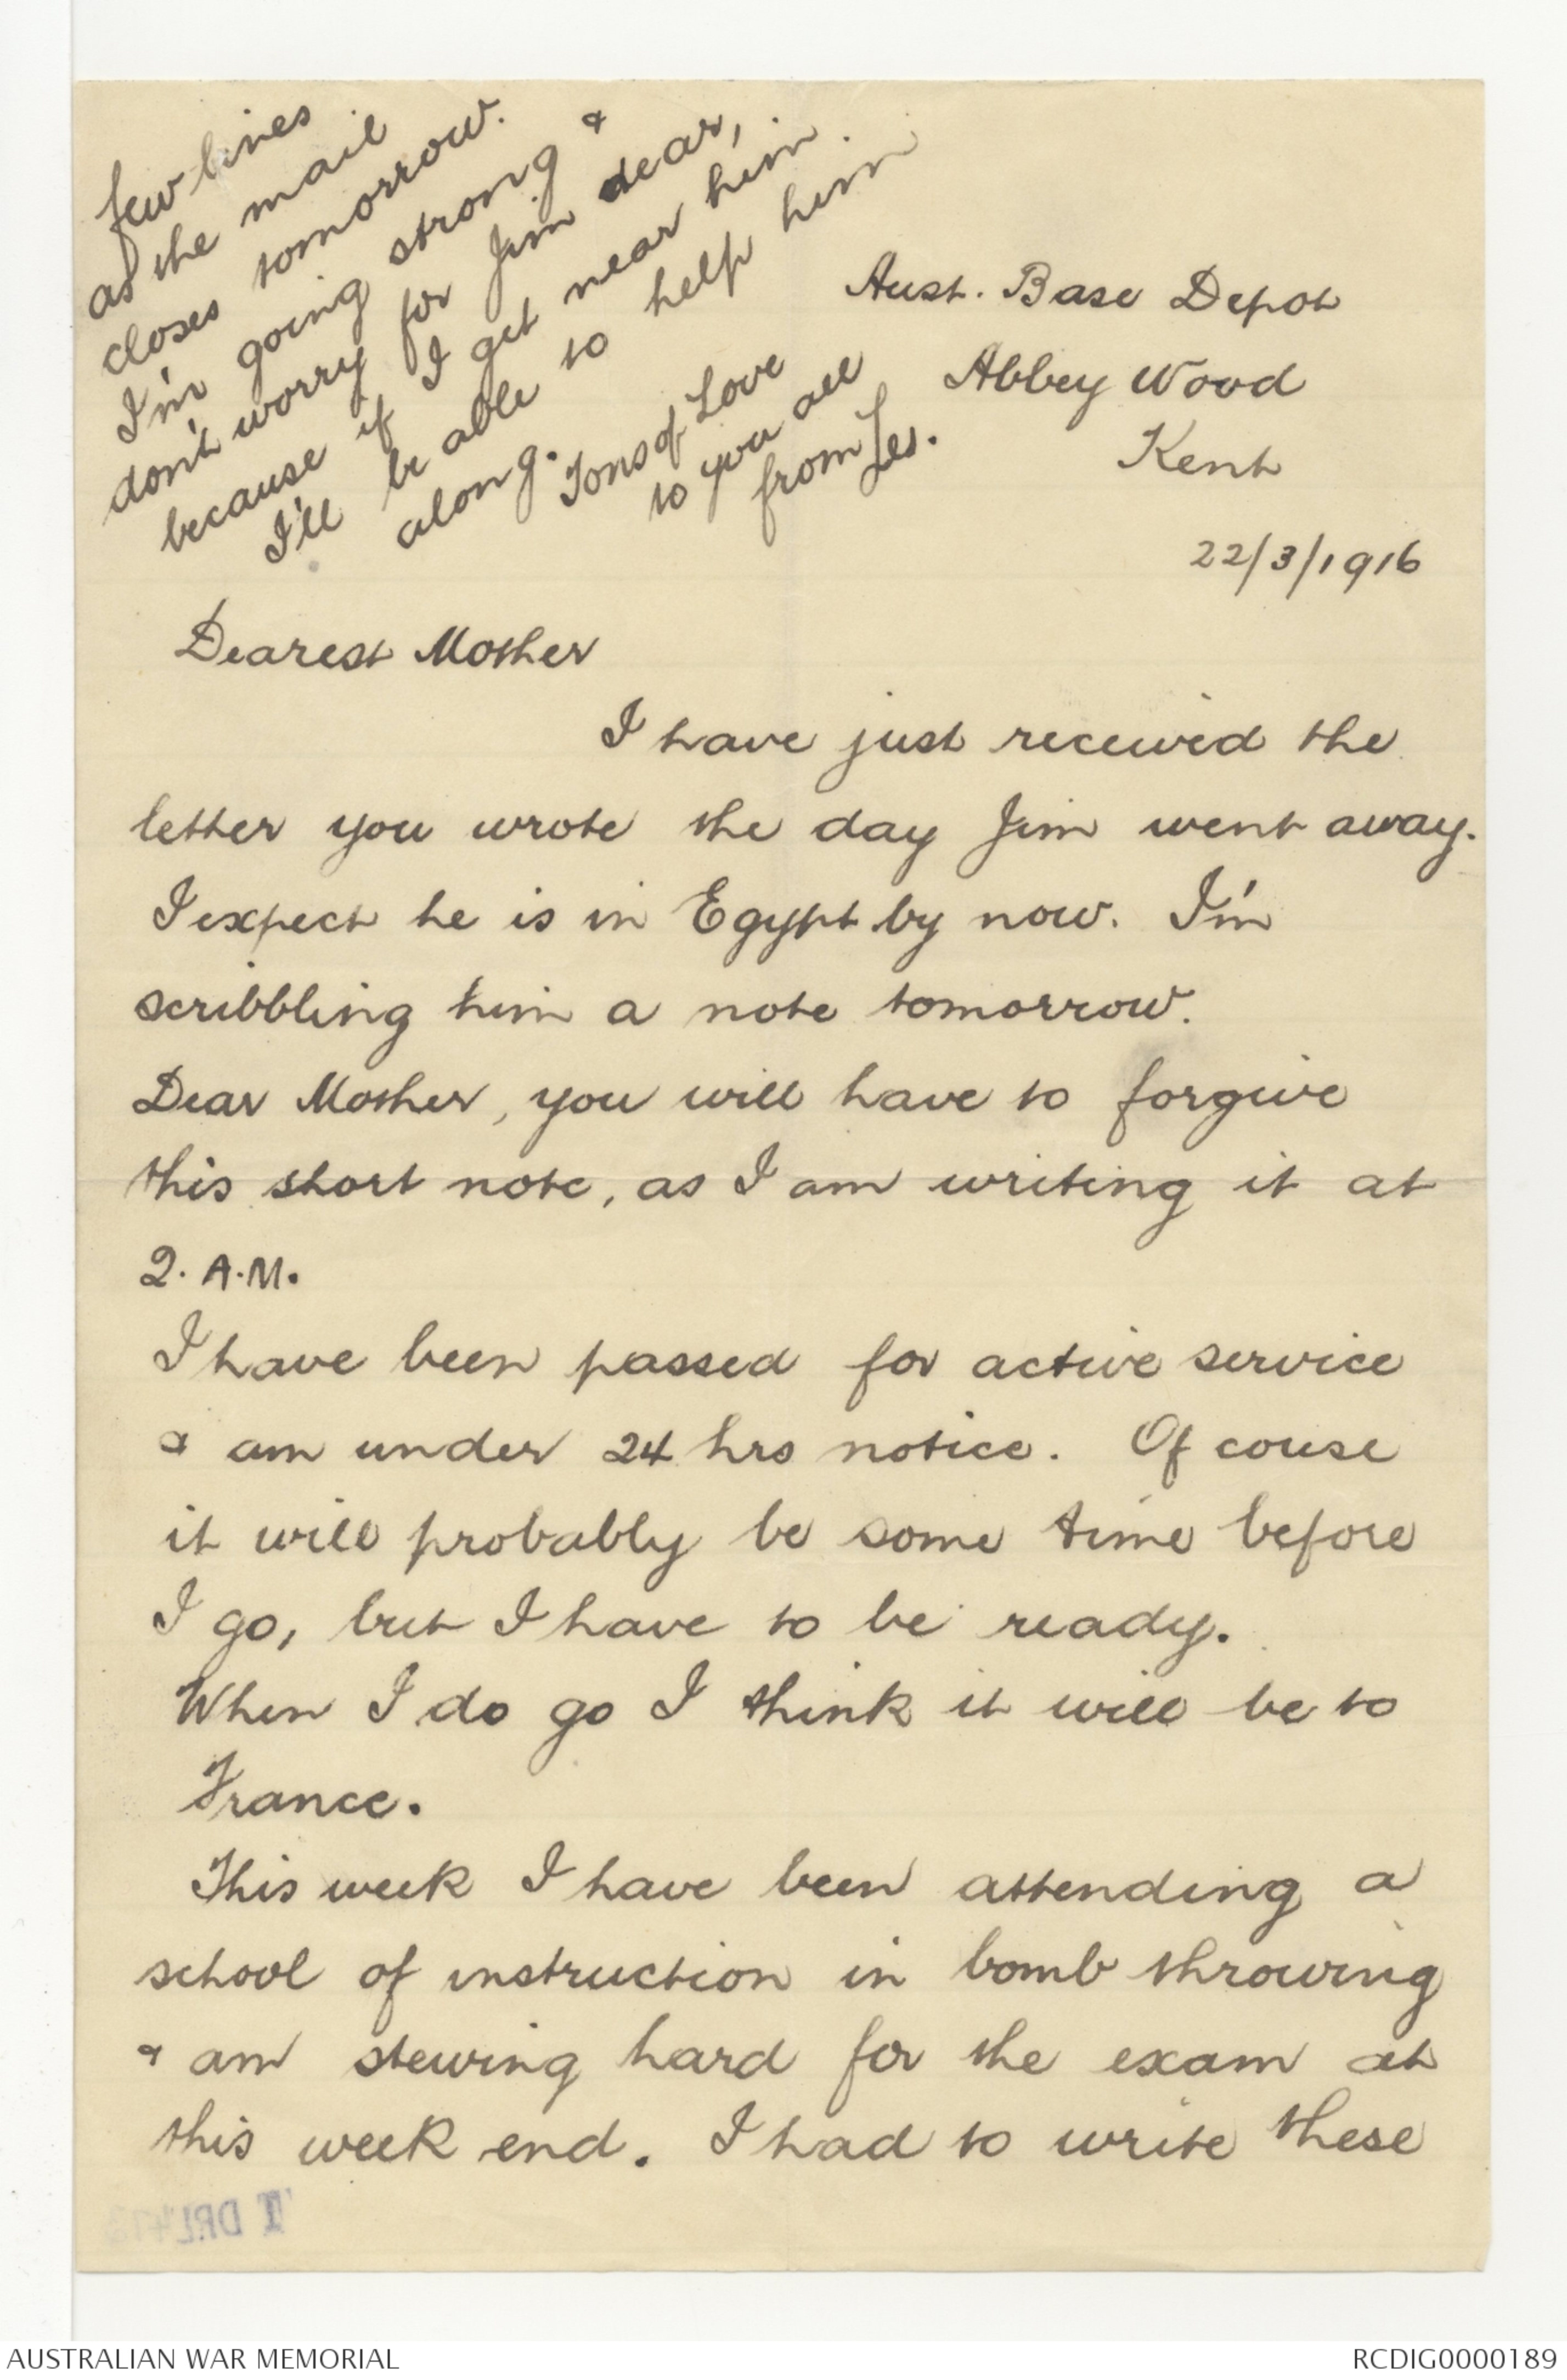 Aust. Base Depot
Abbey Wood
Kent
22/3/1916
Dearest Mother
I have just received the
letter you wrote the day Jim went away.
I expect he is in Egypt by now. I'm
scribbling him a note tomorrow.
Dear Mother, you will have to forgive
this short note, as I am writing it at
2. A.M.
I have been passed for active service
& am under 24 hrs notice. Of couse
it will probably be some time before
I go, but I have to be ready.
When I do go I think it will be to
France.
This week I have been attending a
school of instruction in bomb throwing
& am stewing hard for the exam at
this week end. I had to write these
few lines
as the mail
closes tomorrow.
I'm going strong &
don't worry for Jim dear,
because if I get near him.
I'll be able to help him
along.
Tons of Love
to you all
from Les.
AUSTRALIAN WAR MEMORIAL
RCDIG0000189